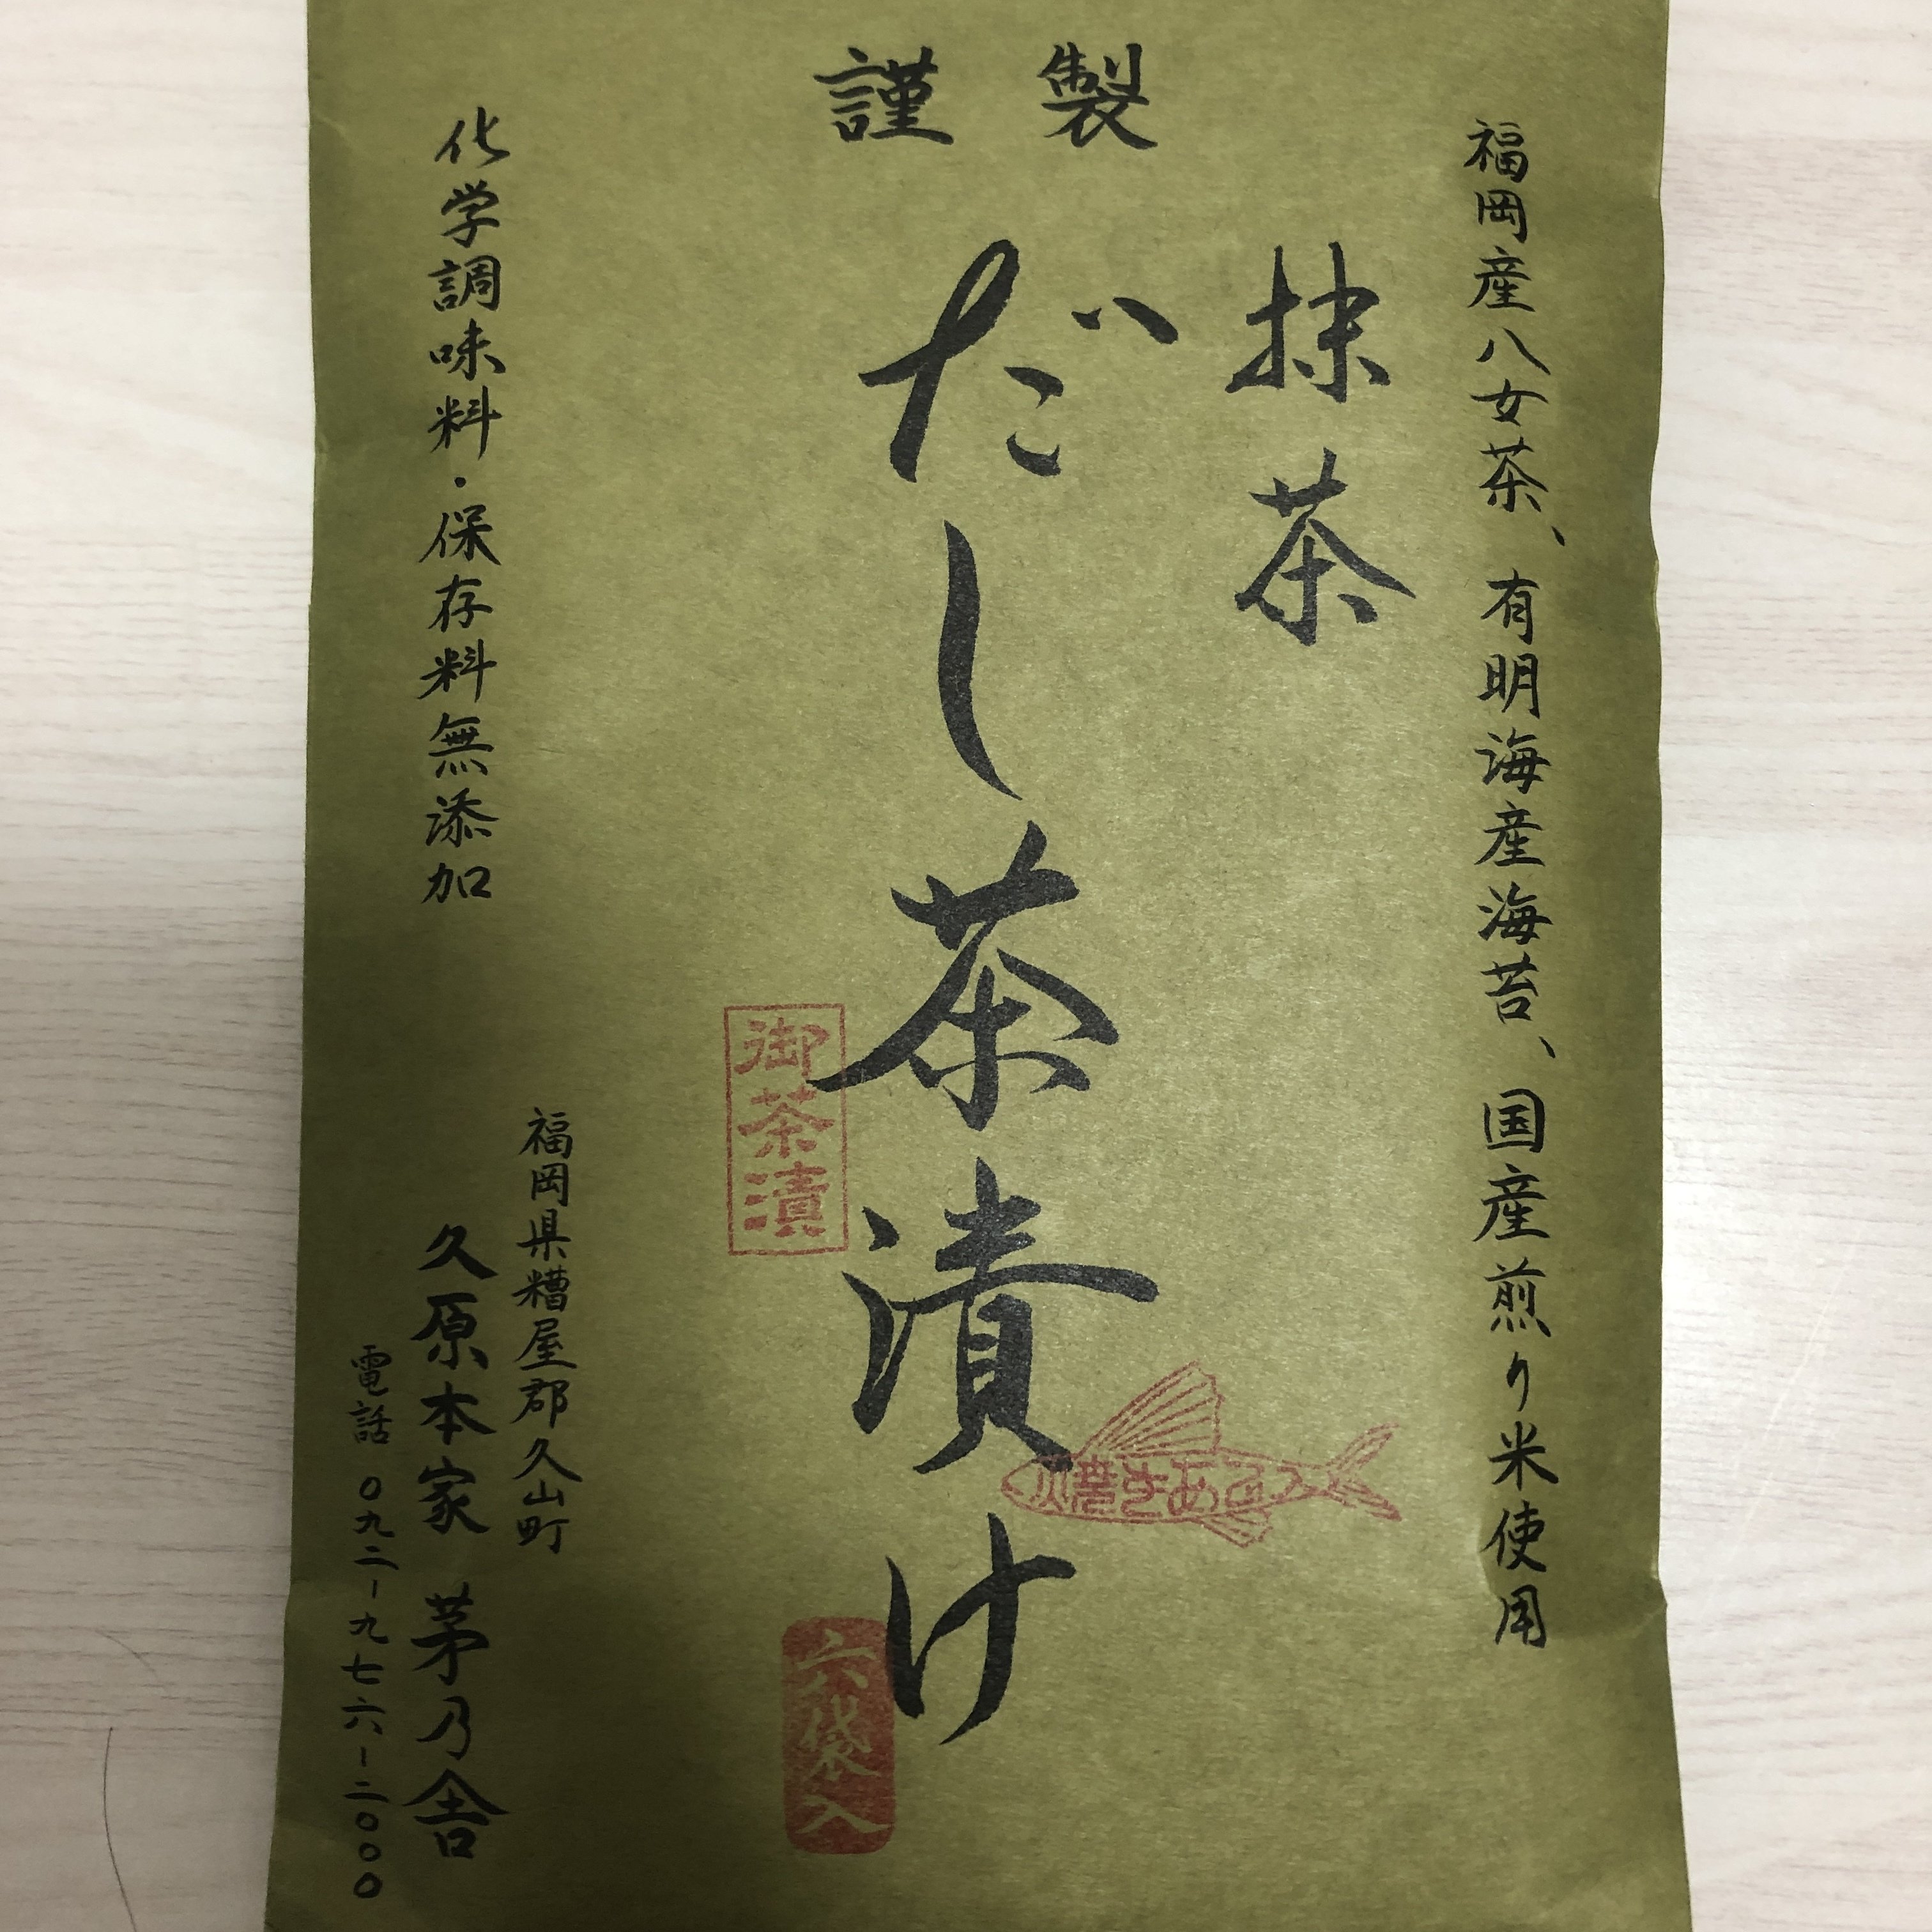 謹製
福岡産八女茶、有明海産海苔、国産煎り米使用
抹茶
だし茶漬け
焼きあご入
御茶漬
六袋入
化学調味料・保存料無添加
福岡県糟屋郡久山町
久原本家 茅乃舎
電話 〇九二-九七六-二〇〇〇